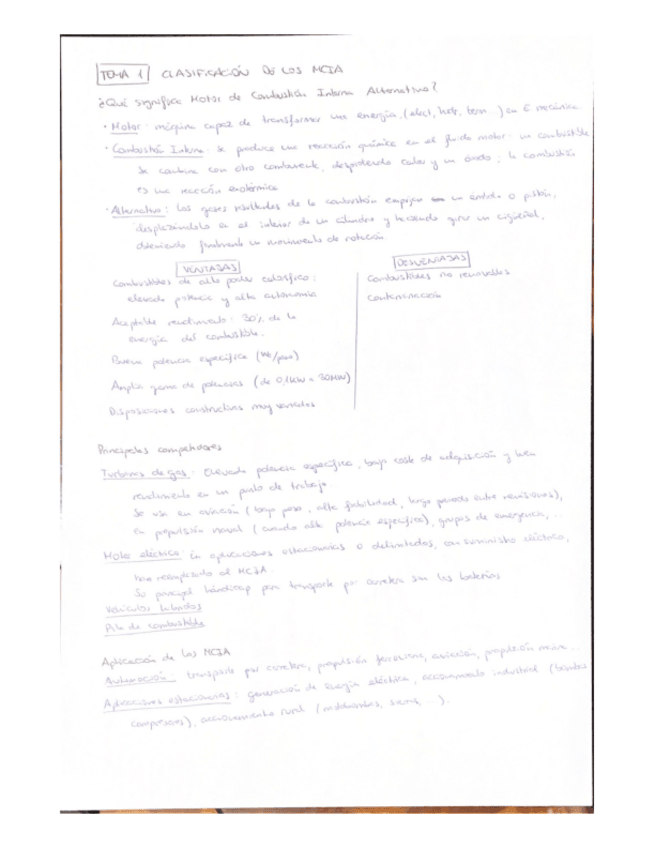 TEMA 1 CLASIFICACIÓN DE LOS MCIA
¿Qué significa Motor de Combustión Interna Alternativo?
· Motor: máquina capaz de transformar una energía (elect, hidr, term...) en E mecánica
· Combustión Interna: se produce una reacción química en el fluido motor: un combustible
se combina con otro comburente, desprendiendo calor y un óxido; la combustión
es una reacción exotérmica
· Alternativo: los gases resultantes de la combustión empujan un émbolo o pistón,
desplazándolo en el interior de un cilindro y haciendo girar un cigüeñal,
obteniendo finalmente un movimiento de rotación
VENTAJAS
Combustibles de alto poder calorífico:
elevada potencia y alta autonomía
Aceptable rendimiento: 30% de la
energía del combustible.
Buena potencia específica (W/peso)
Amplia gama de potencias (de 0,1kW a 30MW)
Disposiciones constructivas muy variadas
DESVENTAJAS
Combustibles no renovables
Contaminación
Principales competidores
Turbinas de gas: Elevada potencia específica, bajo coste de adquisición y buen
rendimiento en un punto de trabajo
Se usa en aviación (bajo peso, alta fiabilidad, largo periodo entre revisiones),
en propulsión naval (cuando alta potencia específica), grupos de emergencia, ...
Motor eléctrico: En aplicaciones estacionarias o delimitadas, con suministro eléctrico,
han reemplazado al MCIA.
Su principal hándicap para transporte por carretera son las baterías
Vehículos híbridos
Pila de combustible
Aplicación de los MCIA
Automoción: transporte por carretera, propulsión ferroviaria, aviación, propulsión marina...
Aplicaciones estacionarias: generación de energía eléctrica, accionamiento industrial (bombas
compresores), accionamiento rural (motobombas, sierras, ...).